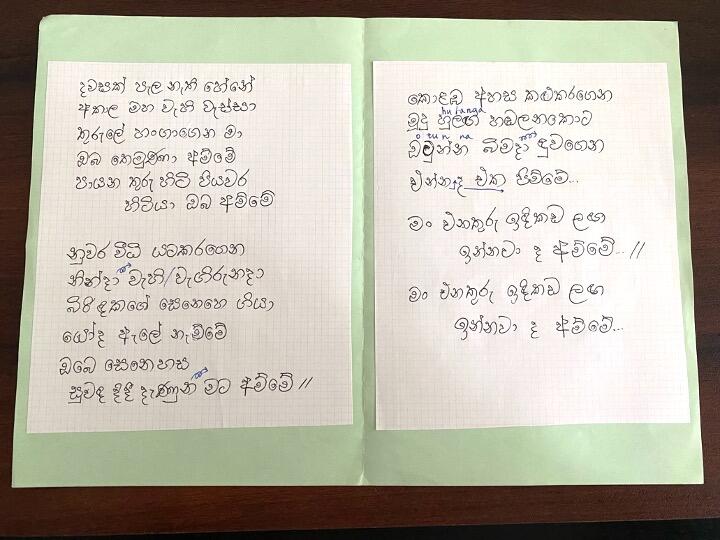 දවසක් පැල නැති හේනේ
අකාල මහ වැහි වැස්සා
තුරුලේ හංගාගෙන මා
ඔබ තෙමුණා අම්මේ
පායන තුරු හිටි පියවර
හිටියා ඔබ අම්මේ
නුවර වීථි යටකරගෙන
නින්දා වැහි වැගිරුනදා
බිරිඳකගේ සෙනෙහෙ ගියා
යෝද ඇලේ නැම්මේ
ඔබෙ සෙනෙහස
සුවඳ දිදී දැණුන මට අම්මේ //
කොළඹ අහස කළුකරගෙන
hulanga
මූදු හුලඟ හඹලනකොට
o tun na
ඔටුන්න බිමදා දුවගෙන
එන්නද ඒක පිම්මේ...
මං එනතුරු ඉදිකඩ ලඟ
ඉන්නවා ද අම්මේ... //
මං එනතුරු ඉදිකඩ ලඟ
ඉන්නවා ද අම්මේ...